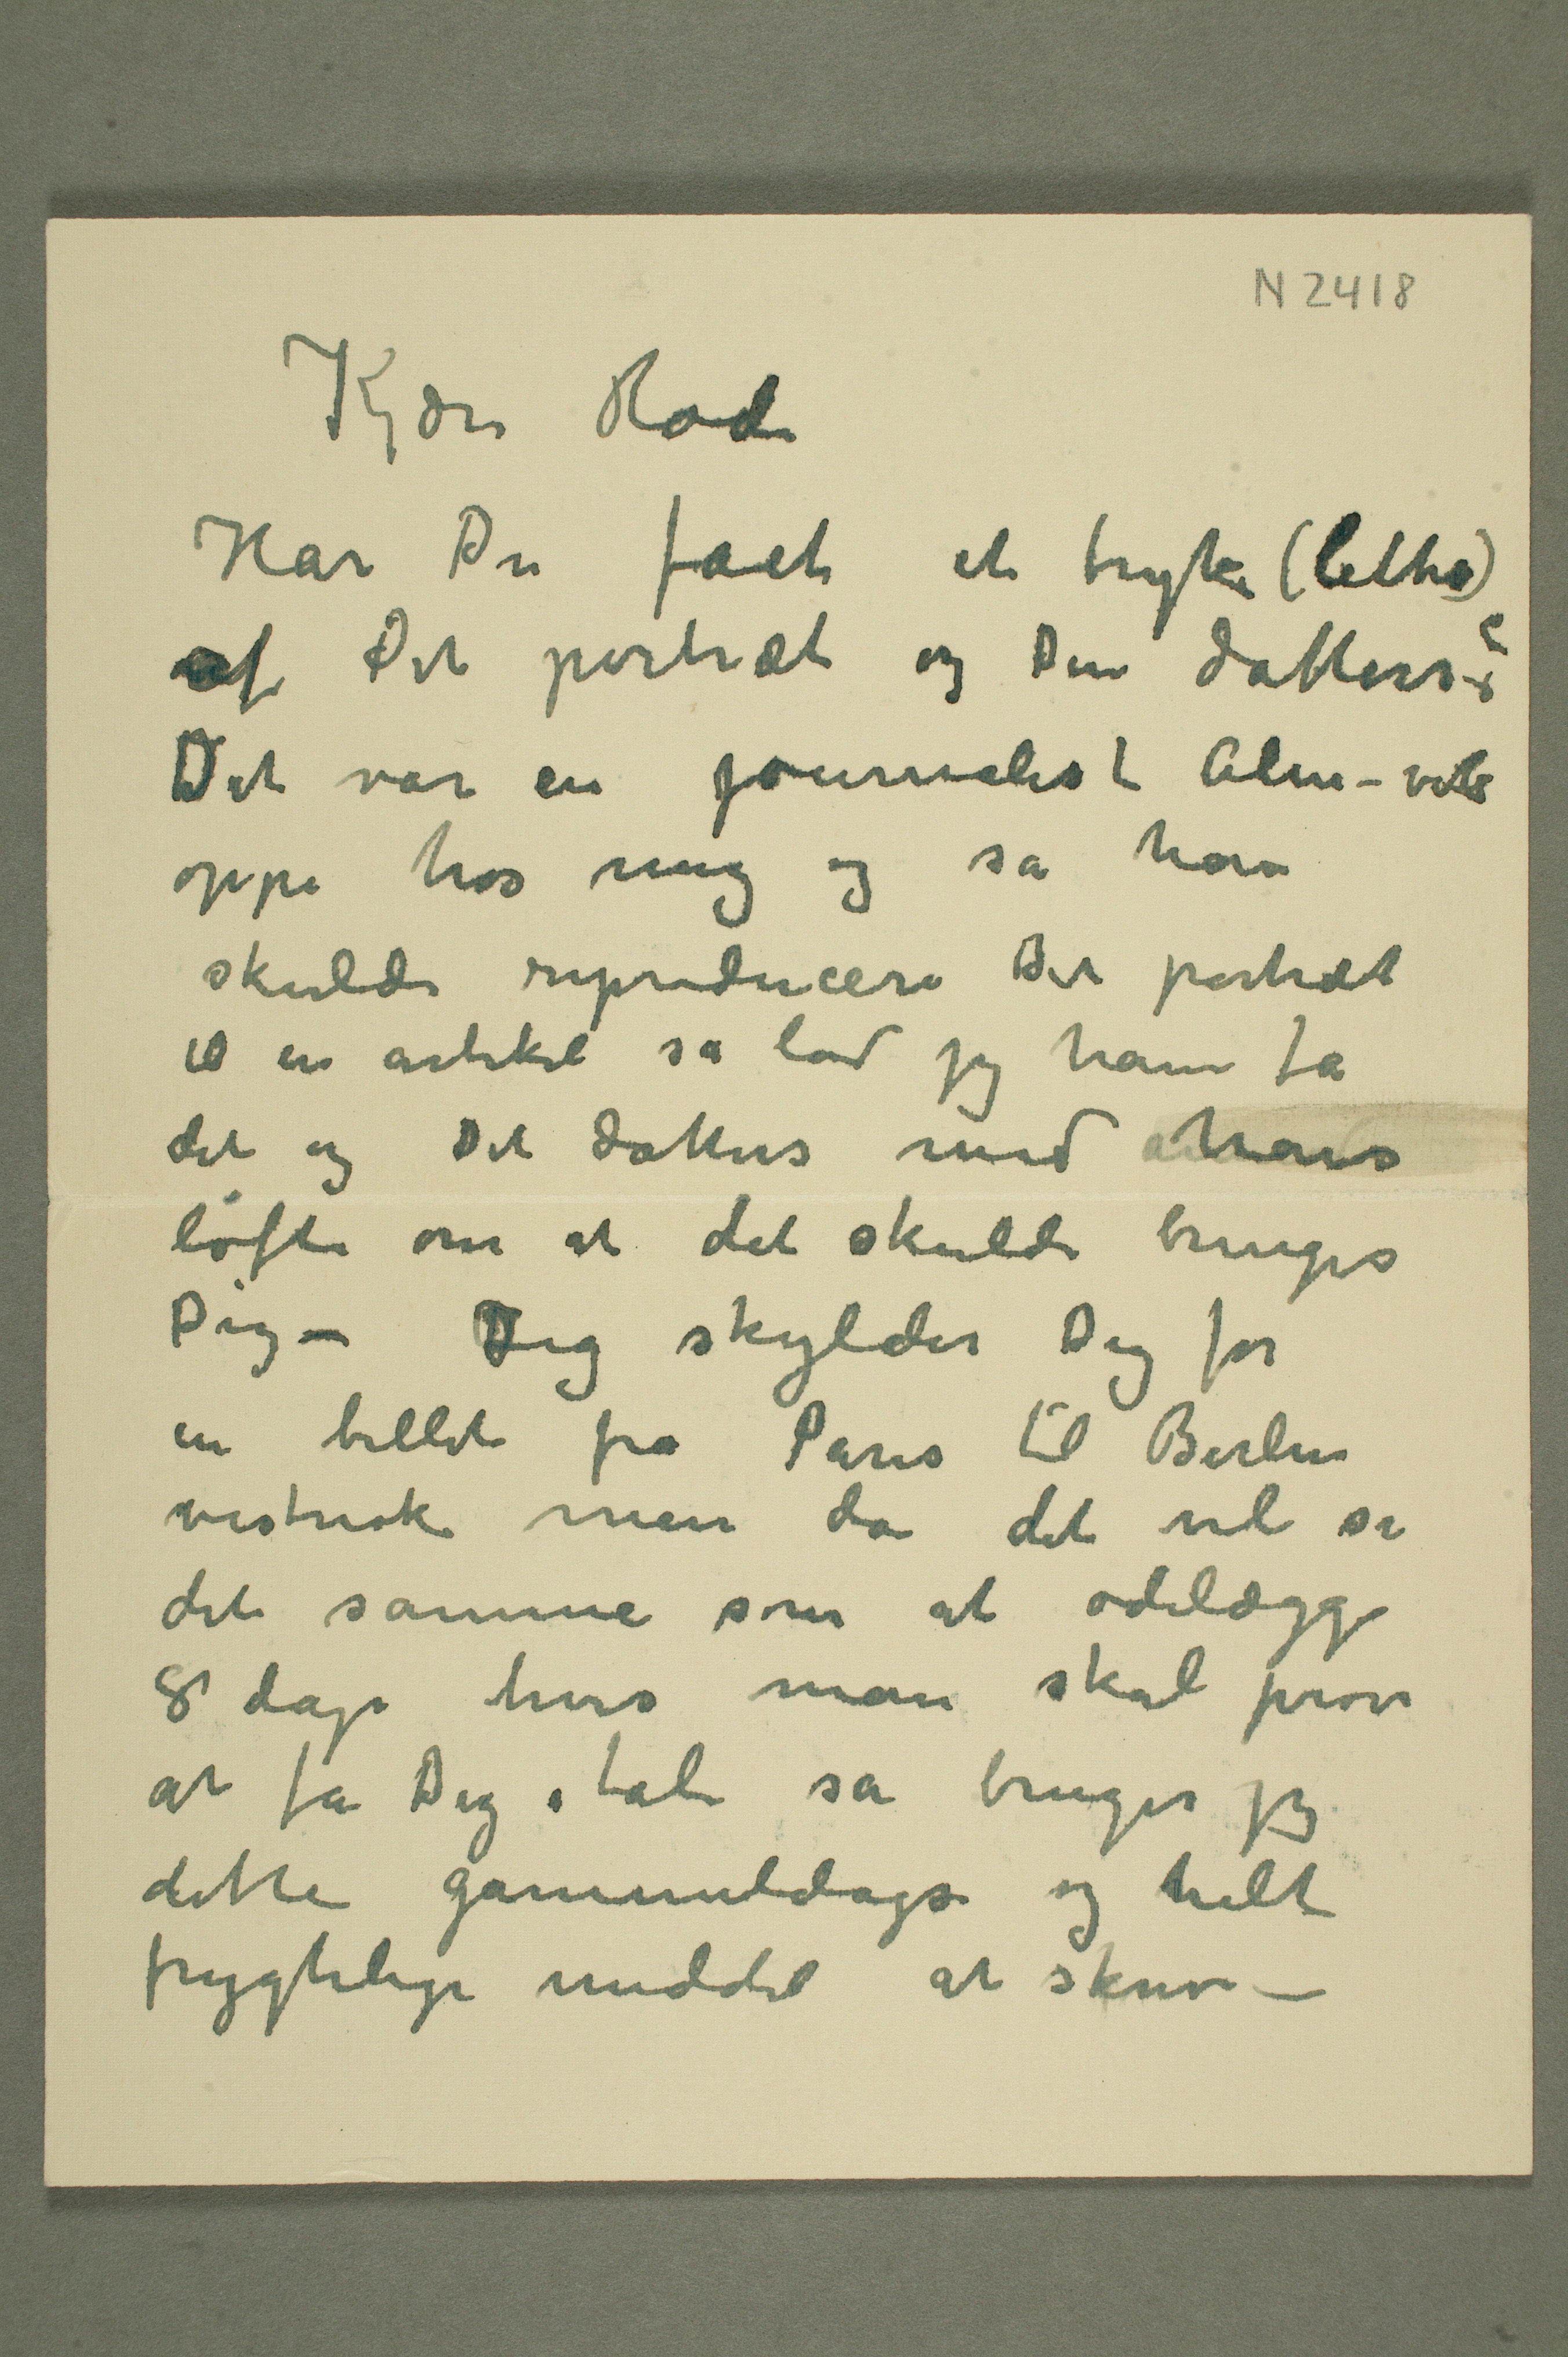 N 2418
Kjære Rode
Har Du faaet et tryk (litho)
af Dit portræt og Din datters?
Det var en journalist Alm-vik
oppe hos mig og sa han
skulde reproducere Dit portræt
til en artikel så lod jeg ham få
det og Din datters mod hans
løfte om at det skulde bringes
Dig – Jeg skylder Dig for
en billet fra Paris til Berlin
vistnok men da det vil si
det samme som at ødelægge
8 dage hvis man skal prøve
at få Dig i tale så bruger jeg
dette gammeldagse og helt
frygtelige middel at skrive –